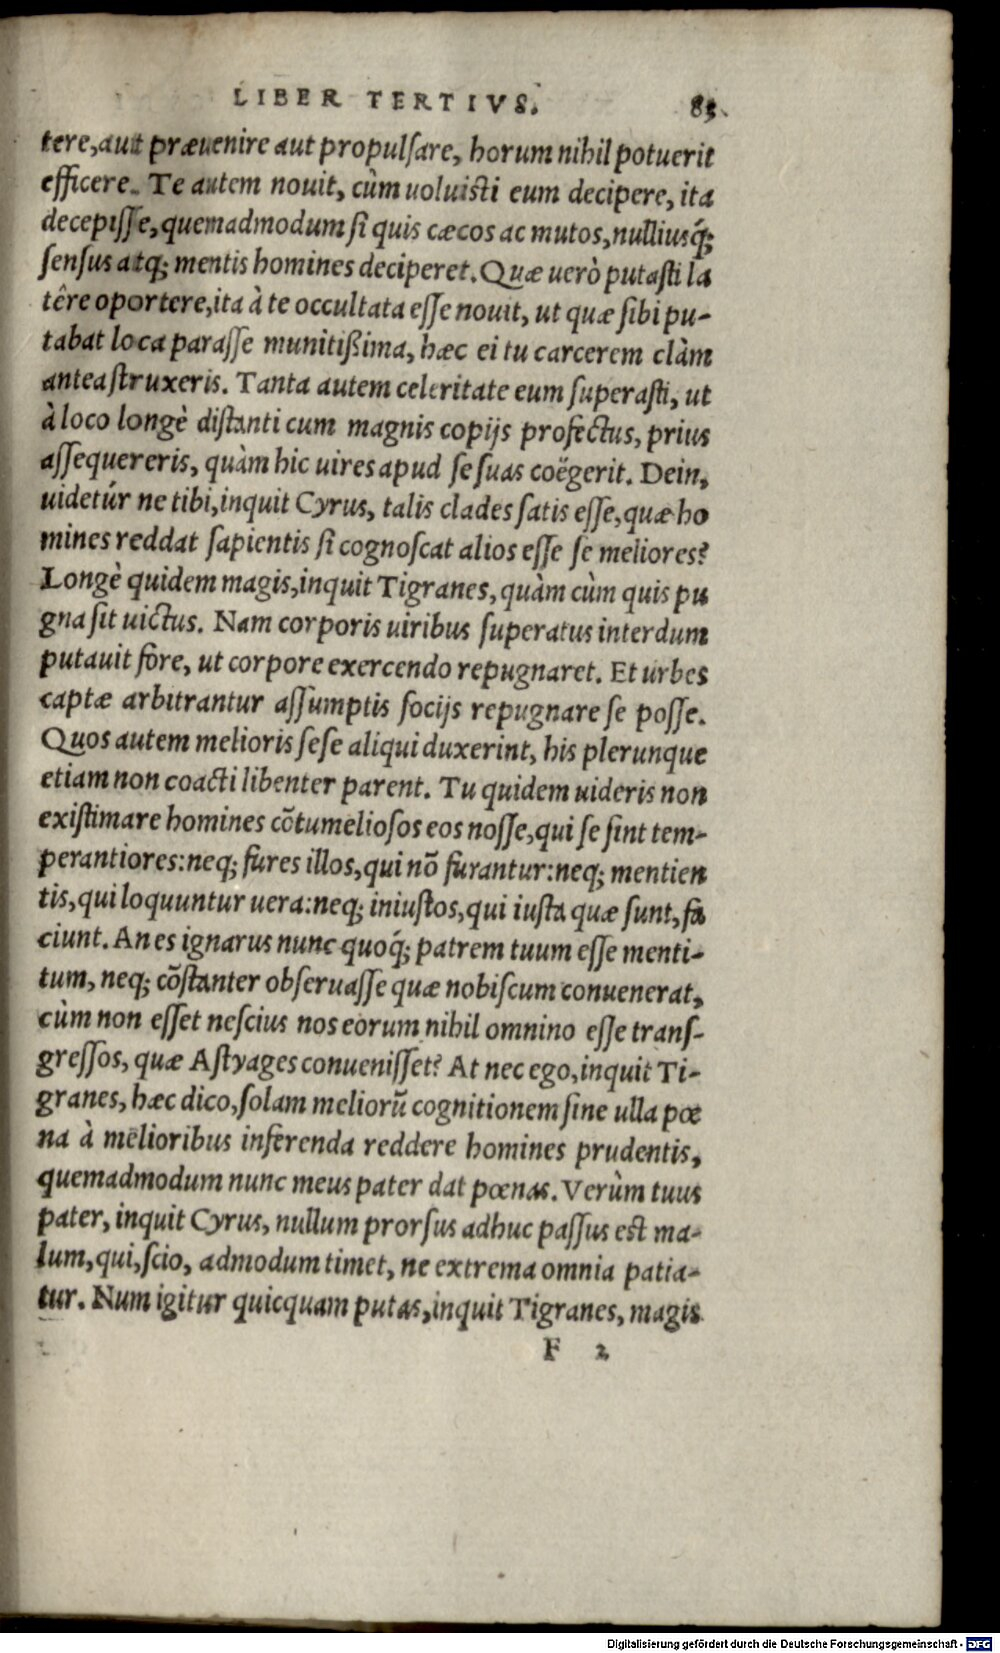 LIBER TERTIVS. 83
tere, aut præuenire aut propulſare, horum nihil potuerit
efficere. Te autem nouit, cùm uoluiſti eum decipere, ita
decepiſſe, quemadmodum ſi quis cæcos ac mutos, nulliusq́;
ſenſus atq; mentis homines deciperet. Quæ uerò putaſti la
têre oportere, ita à te occultata eſſe nouit, ut quæ ſibi pu-
tabat loca paraſſe munitißima, hæc ei tu carcerem clàm
antea ſtruxeris. Tanta autem celeritate eum ſuperaſti, ut
à loco longè diſtanti cum magnis copijs profectus, prius
aſſequereris, quàm hic uires apud ſe ſuas coëgerit. Dein,
uidetúr ne tibi, inquit Cyrus, talis clades ſatis eſſe, quæ ho
mines reddat ſapientis ſi cognoſcat alios eſſe ſe meliores?
Longè quidem magis, inquit Tigranes, quàm cùm quis pu
gna ſit uictus. Nam corporis uiribus ſuperatus interdum
putauit fore, ut corpore exercendo repugnaret. Et urbes
captæ arbitrantur aſſumptis ſocijs repugnare ſe poſſe.
Quos autem melioris ſeſe aliqui duxerint, his plerunque
etiam non coacti libenter parent. Tu quidem uideris non
exiſtimare homines cõtumelioſos eos noſſe, qui ſe ſint tem-
perantiores: neq; fures illos, qui nõ furantur: neq; mentien
tis, qui loquuntur uera: neq; iniuſtos, qui iuſta quæ ſunt, fa
ciunt. An es ignarus nunc quoq́; patrem tuum eſſe menti-
tum, neq; cõſtanter obſeruaſſe quæ nobiſcum conuenerat,
cùm non eſſet neſcius nos eorum nihil omnino eſſe tranſ-
greſſos, quæ Aſtyages conueniſſet? At nec ego, inquit Ti-
granes, hæc dico, ſolam meliorũ cognitionem ſine ulla pœ
na à melioribus inferenda reddere homines prudentis,
quemadmodum nunc meus pater dat pœnas. Verùm tuus
pater, inquit Cyrus, nullum prorſus adhuc paſſus eſt ma-
lum, qui, ſcio, admodum timet, ne extrema omnia patia-
tur. Num igitur quicquam putas, inquit Tigranes, magis
F 2
Digitalisierung gefördert durch die Deutsche Forschungsgemeinschaft - DFG